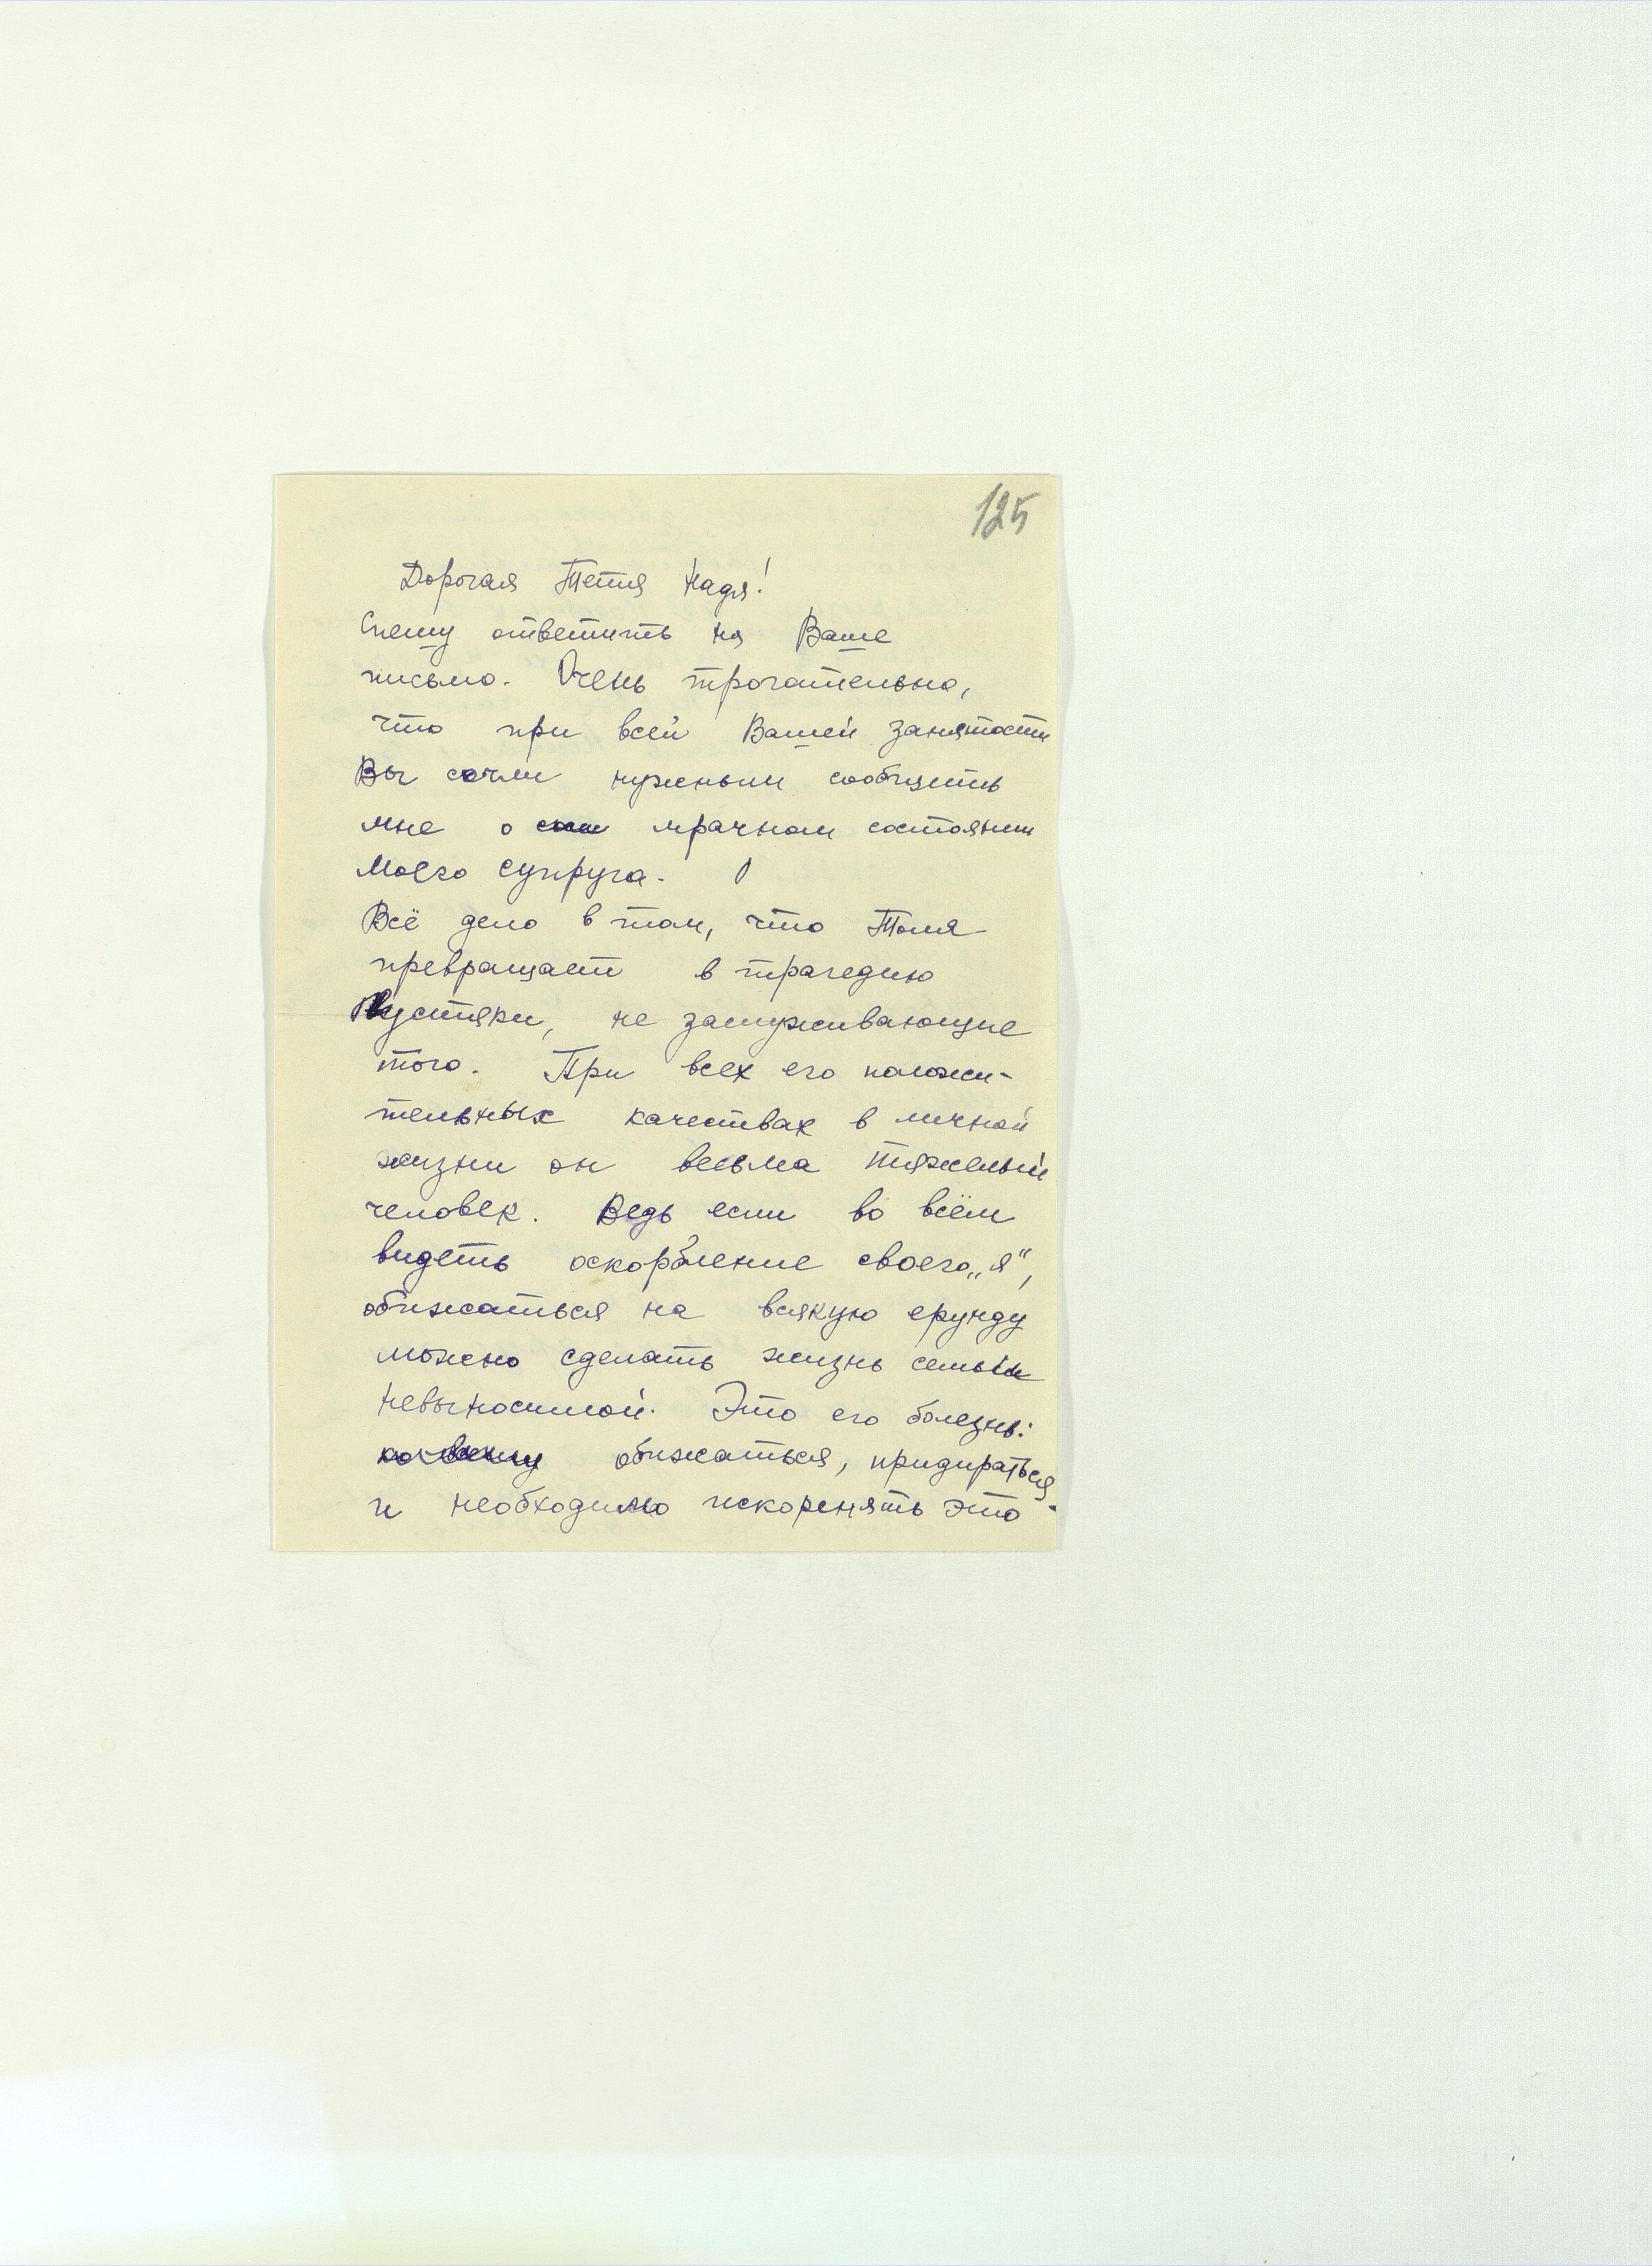 125
Дорогая Тетя Надя!
Спешу ответить на Ваше
письмо. Очень трогательно,
что при всей Вашей занятости
Вы сочли нужным сообщить
мне о мрачном состоянии
Моего супруга.
Всё дело в том, что Толя
превращает в трагедию
Пустяки, не заслуживающие
того. При всех его положи-
тельных качествах в личной
жизни он весьма тяжелый
человек. Ведь если во всём
видеть оскорбление своего „я“,
обижаться на всякую ерунду
можно сделать жизнь семьи
невыносимой. Это его болезнь:
обижаться, придираться.
и необходимо искоренять это